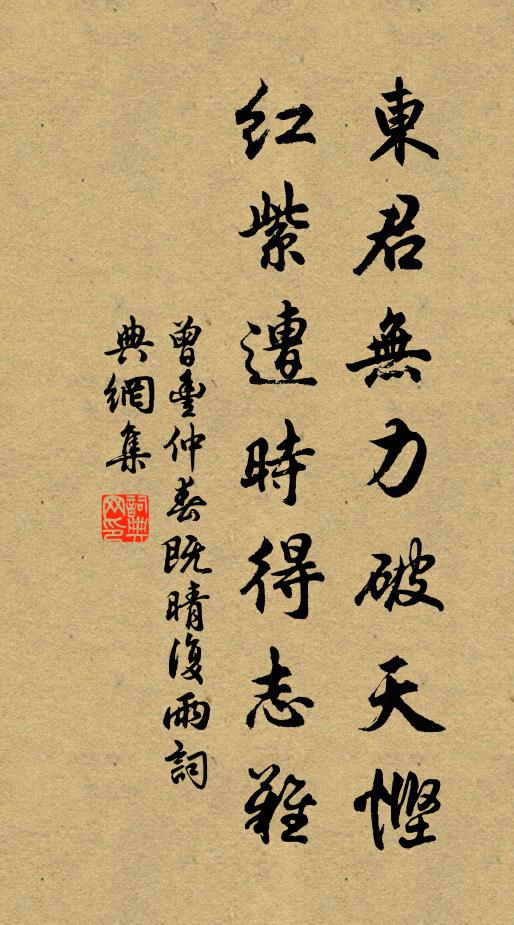 東君無力破天慳
紅紫遭時得志難
曾豊仲春既晴復雨詞
典網集
詞典網印